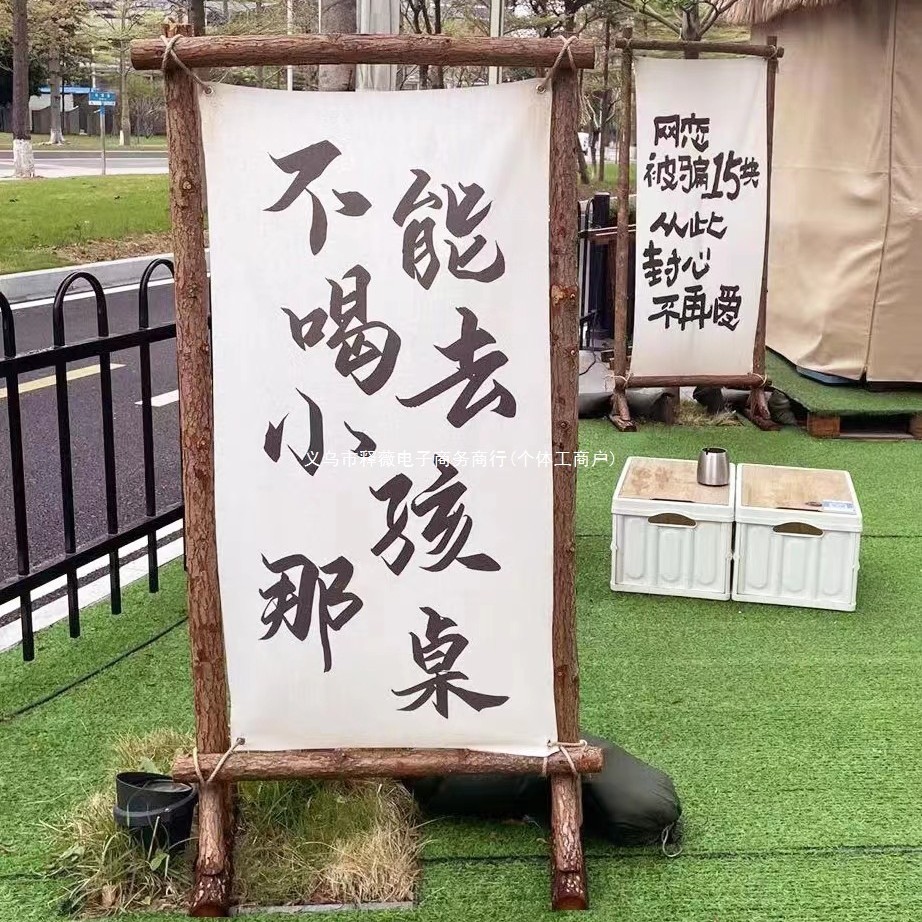 不能
喝去
小孩
那桌
网恋
被骗15块
从此
封心
不再爱
义乌市释薇电子商务商行(个体工商户)